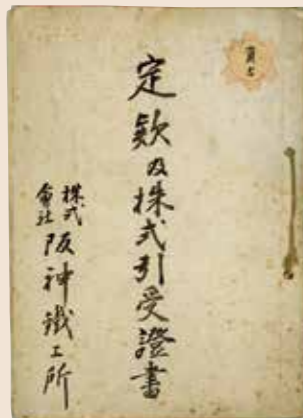 定款及株式引受證書
株式
會社
阪神鐵工所